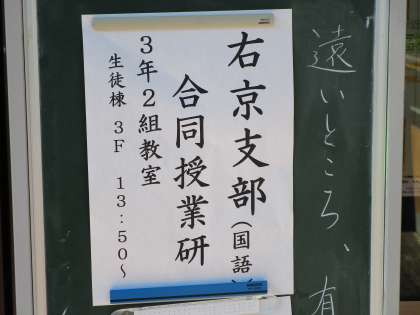 遠いところ、有
右京支部(国語)
合同授業研
3年2組教室
生徒棟 3F 13:50~